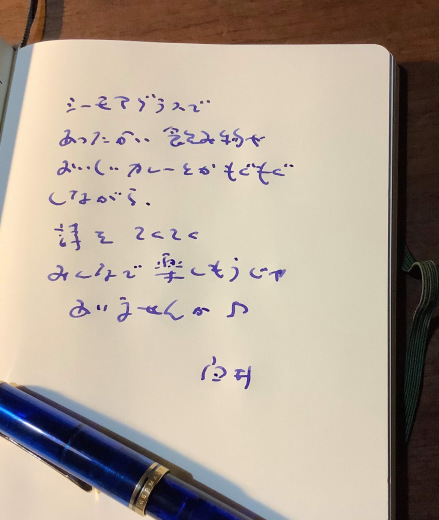 シーモアグラスで
あったかい飲み物や
おいしいカレーとかもぐもぐ
しながら、
詩をてくてく
みんなで楽しもうじゃ
ありませんか♪